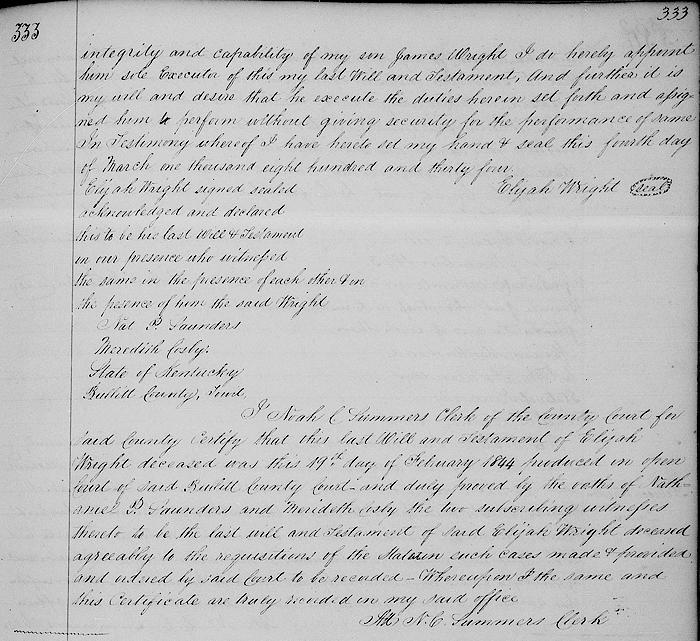 333
333
integrity and capability of my son James Wright I do hereby appoint
him sole Executor of this my last Will and Testament, And further it is
my will and desire that he execute the duties herein set forth and assig-
ned him to perform without giving security for the performance of same
In Testimony whereof I have hereto set my hand & seal this fourth day
of March one thousand eight hundred and thirty four.
Elijah Wright signed sealed Elijah Wright (seal)
acknowledged and declared
this to be his last Will & Testament
in our presence who witnessed
the same in the presence of each other & in
the presence of him the said Wright
Nat P Saunders
Meredith Cosby
State of Kentucky
Bullitt County, Towit,
I Noah C Summers Clerk of the County Court for
said County Certify that this last Will and Testament of Elijah
Wright deceased was this 19th day of February 1844 produced in open
Court of said Bullitt County Court – and duly proved by the oaths of Nath-
aniel P Saunders and Meredith Cosby the two subscribing witnesses
thereto to be the last will and Testament of said Elijah Wright deceased
agreeably to the requisitions of the Statue in such cases made & provided
and ordered by said Court to be recorded – Whereupon the same and
this Certificate are truly recorded in my said office
Att N. C. Summers Clerk